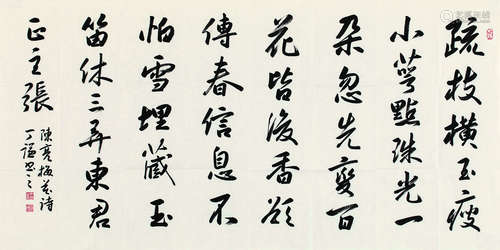 疏枝橫玉瘦
小萼點珠光一
朵忽先變百
花皆後香欲
傳春信息不
怕雪埋藏玉
笛休三弄東君
正主張
陳亮梅花詩
丁謙